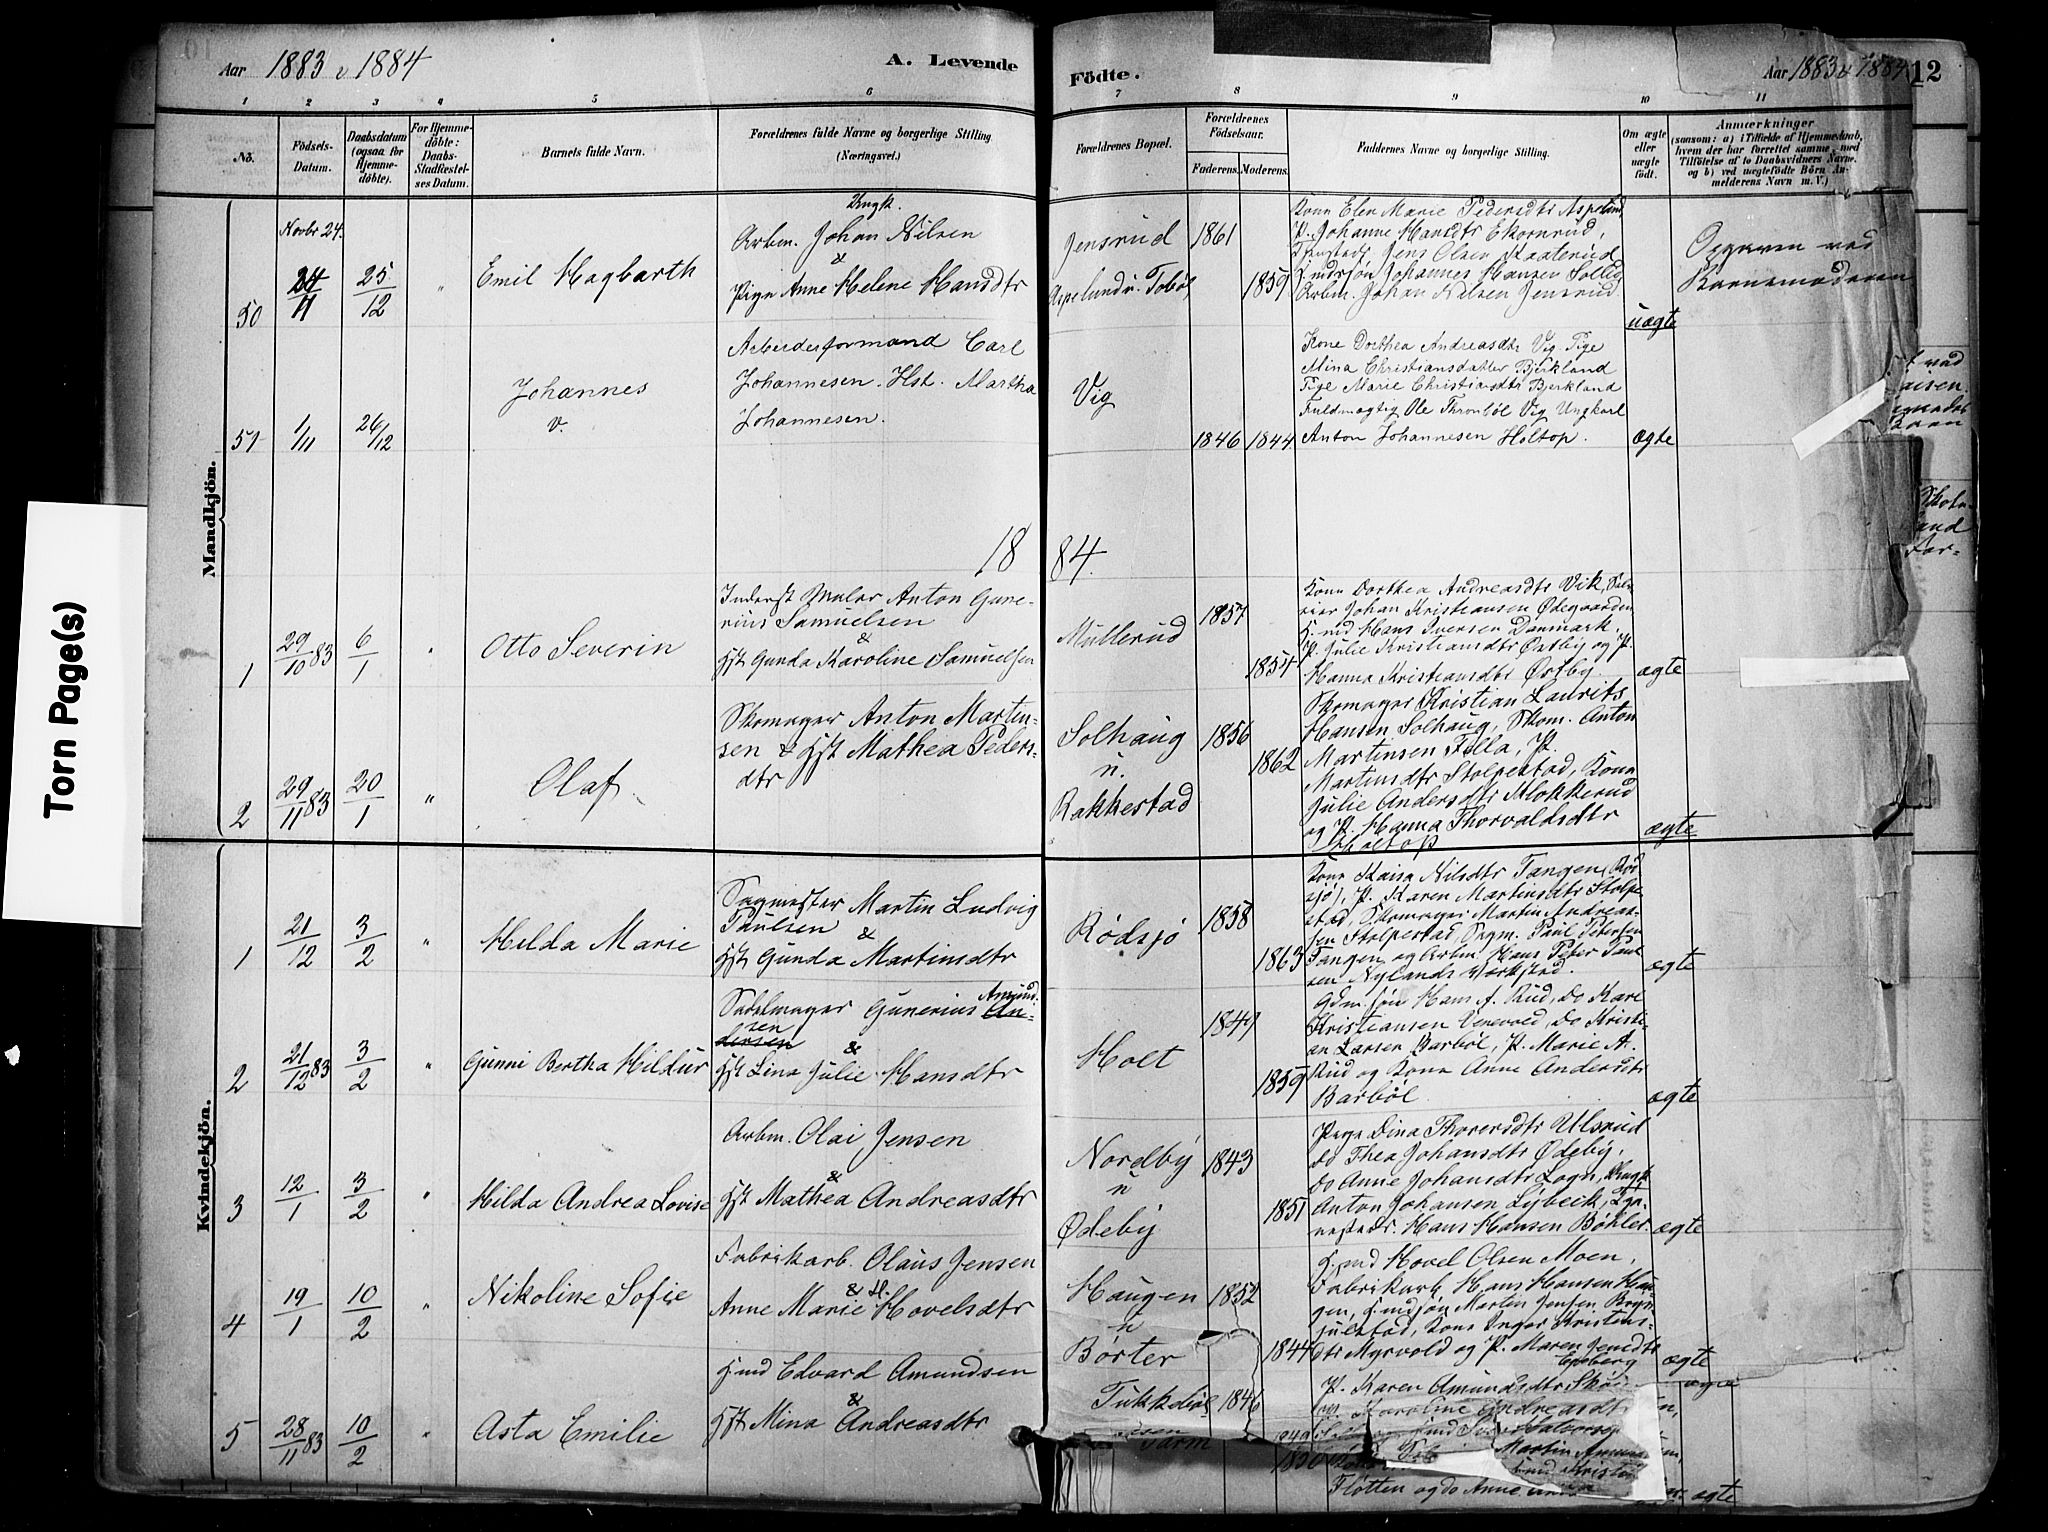 Aar 1883 & 1884
A. Levende
Födte.
Aar 1883 & 1884
12
1 2 3 4 5 6 7 8 9 10 11
No.
Födsels-
Datum.
Daabsdatum
(ogsaa for
Hjemme-
döbte).
For Hjemme-
döbte:
Daabs-
Stadfæstel-
ses Datum.
Barnets fulde Navn.
Forældrenes fulde Navne og borgerlige Stilling
(Næringsvei.)
Forældrenes Bopæl.
Forældrenes
Födselsaar.
Faderens.
Moderens.
Faddernes Navne og borgerlige Stilling.
Om ægte
eller
uægte
födt.
Anmærkninger
(saasom: a) i Tilfælde af Hjemmedaab,
hvem der har forrettet samme, med
Tilföielse af to Daabsvidners Navne,
og b) ved uægtefödte Börn An-
melderens Navn m. V.)
Mandkjön.
50
Novbr 24.
24/11
25/12
"
Emil Hagbarth
Ungk.
Arbm. Johan Nilsen
&
Pige Anne Helene Hansdtr
Jensrud
Aspelund u. Tobøl
1861
1859
Kone Elen Marie Pedersdtr Aspelund
P. Johanne Hansdtr Ekornrud,
Jens Olsen Kaaterud
Gmdrsøn Johannes Hansen Sollid
Arbm. Johan Nilsen Jensrud
uægte
Opgaven ved
Barnemoderen
51
1/11
26/12
Johannes
v.
Arbeidsformand Carl
Johannesen. Hst. Martha
Johannesen.
Vig
1846
1844
Kone Dorthea Andreasdtr Vig Pige
Mina Christiansdatter Bjerkland
Pige Marie Christiansdtr Bjerkland
Fuldmægtig Ole Thronbøl Vig Ungkarl
Anton Johannesen Holtop.
ægte
18 84.
1
29/10 83
6/1
"
Otto Severin
Inderst Maler Anton Gune-
rius Samuelsen
&
Hst Gunda Karoline Samuelsen
Mullerud
1857
1854
Kone Dorthea Andreasdtr Vik,
Johan Kristiansen Ødegaarden
Hans Iversen Danmark,
P. Julie Kristiansdtr Østby og P.
Hanna Kristiansdtr Østby
ægte
2
29/11 83
20/1
"
Olaf
Skomager Anton Martin-
sen & Hst Mathea Peders-
dtr
Solhaug
u.
Rakkestad
1856
1862
Skomager Kristian Laurits
Hansen Solhaug, Skom. Anton
Martinsen Filla, P.
Martinsdtr Stolpestad, Kone
Julie Andersdtr Klokkerud
og P. Hanna Thorvaldsdtr
Holtop
ægte
Kvindekjön.
1
21/12
3/2
"
Hilda Marie
Sagmester Martin Ludvig
Paulsen &
Hst Gunda Martinsdtr
Rødsjø
1858
1863
Kone Kaisa Nilsdtr Tangen (Rød-
sjø), P. Karen Martinsdtr Stolpe-
stad, Skomager Martin Andreas-
sen Stolpestad, Sagm. Paul Petersen
Tangen og Arbm. Hans Peter Paul-
sen Nylands Værksted.
ægte
2
21/12 83
3/2
"
Gunni Bertha Hildur
Sadelmager Gunerius Amund-
sen
Andersen
&
Hst Lina Julie Hansdtr
Holt
1849
1859
Gdm.søn Hans A. Rud, Do Karl
Kristiansen Venevold, Do Kristi-
an Larsen Barbøl, P. Marie A.
Rud og Kone Anne Andersdtr
Barbøl.
ægte
3
12/1
3/2
"
Hilda Andrea Lovise
Arbm. Olai Jensen
&
Hst Mathea Andreasdtr
Nordby
u
Ødeby
1843
1851
Pige Dina Thoresdtr Ulsrud
do Thea Johansdtr Ødeby,
Do Anne Johansdtr Logn, Ungk
Anton Johansen Lybeck,
Hans Hansen Bøhler.
ægte
4
19/1
10/2
"
Nikoline Sofie
Fabrikarb. Olaus Jensen
& H.
Anne Marie Hovelsdtr
Haugen
u
Børter
1852
1844
Gmd Hovel Olsen Moen,
Fabrikarb. Hans Hansen Hau-
gen, Gmdsøn Martin Jensen Bryn-
julstad, Kone Inger Kristens-
dtr Myrvold og P. Maren Jensdtr
Egeberg
ægte
5
28/11 83
10/2
"
Asta Emilie
Gmd Edvard Amundsen
&
Hst Mina Andreasdtr
1846
P. Karen Amundsdtr
Karoline Andreasdtr
Martin
1850
Fløtten og do Anne
ægte
Torn Page(s)